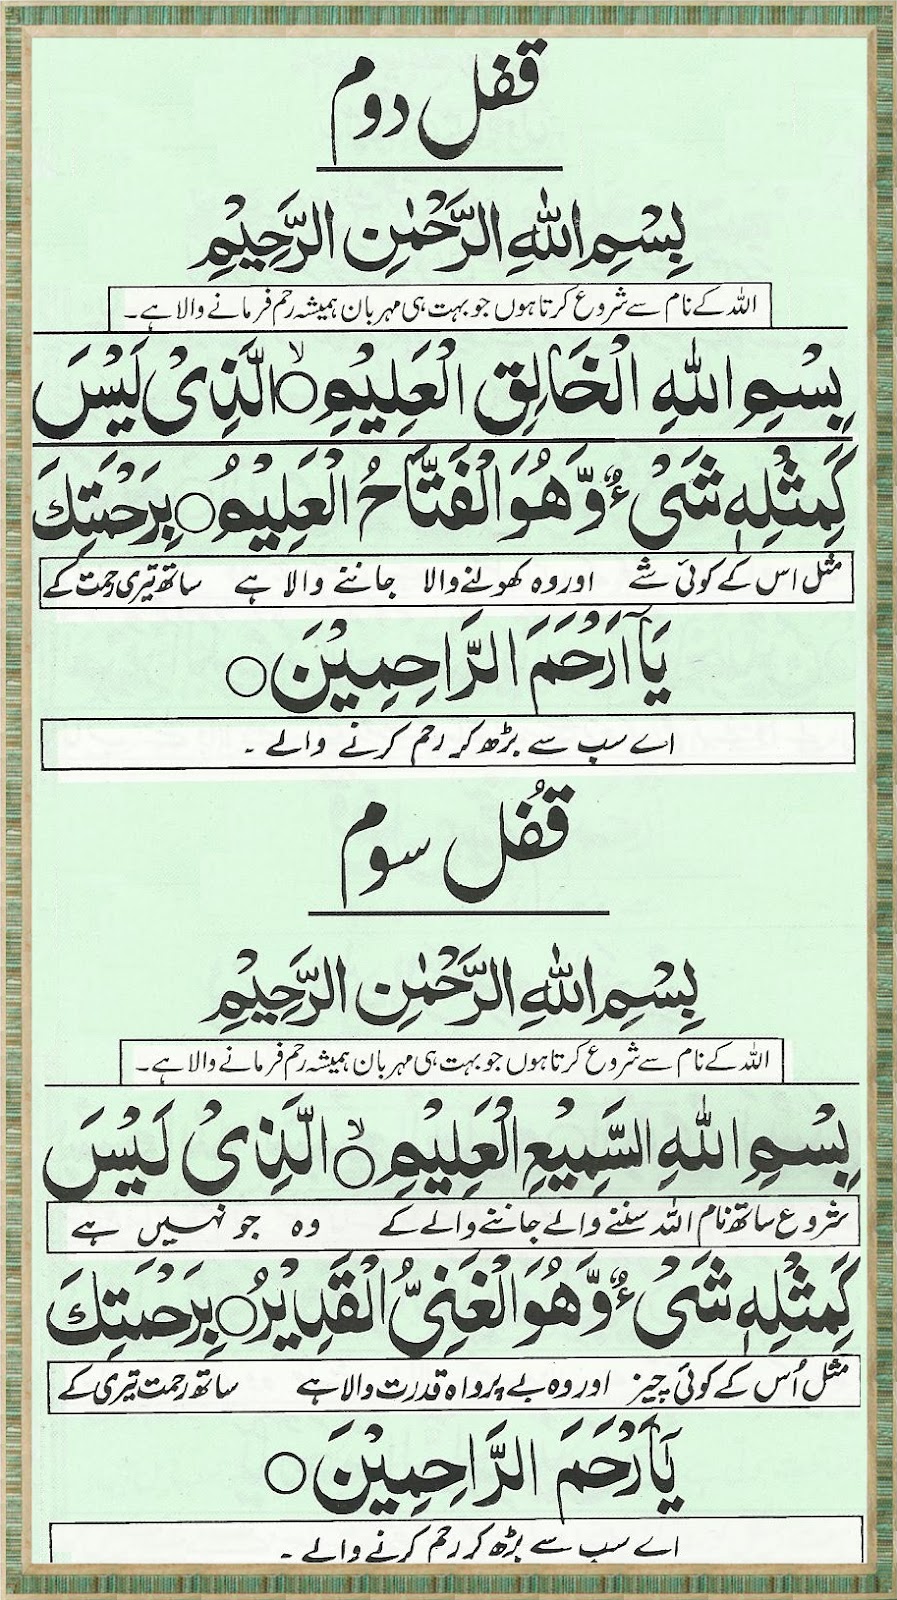 قفل دوم
بِسْمِ اللّٰهِ الرَّحْمٰنِ الرَّحِيْمِ
اللہ کے نام سے شروع کرتا ہوں جو بہت ہی مہربان ہمیشہ رحم فرمانے والا ہے۔
بِسْمِ اللّٰهِ الْخَالِقِ الْعَلِيْمِ ○ۙ الَّذِىْ لَيْسَ
كَمِثْلِهٖ شَىْءٌ وَّهُوَ الْفَتَّاحُ الْعَلِيْمُ ○ بِرَحْمَتِكَ
مثل اس کے کوئی شے اور وہ کھولنے والا جاننے والا ہے ساتھ تیری رحمت کے
يَآ اَرْحَمَ الرَّاحِمِيْنَ ○
اے سب سے بڑھ کر رحم کرنے والے ۔
قُفل سوم
بِسْمِ اللّٰهِ الرَّحْمٰنِ الرَّحِيْمِ
اللہ کے نام سے شروع کرتا ہوں جو بہت ہی مہربان ہمیشہ رحم فرمانے والا ہے۔
بِسْمِ اللّٰهِ السَّمِيْعِ الْعَلِيْمِ ○ۙ الَّذِىْ لَيْسَ
شروع ساتھ نام اللہ سننے والے جاننے والے کے وہ جو نہیں ہے
كَمِثْلِهٖ شَىْءٌ وَّهُوَ الْغَنِىُّ الْقَدِيْرُ ○ بِرَحْمَتِكَ
مثل اُس کے کوئی چیز اور وہ بے پرواہ قدرت والا ہے ساتھ رحمت تیری کے
يَآ اَرْحَمَ الرَّاحِمِيْنَ ○
اے سب سے بڑھ کر رحم کرنے والے ۔